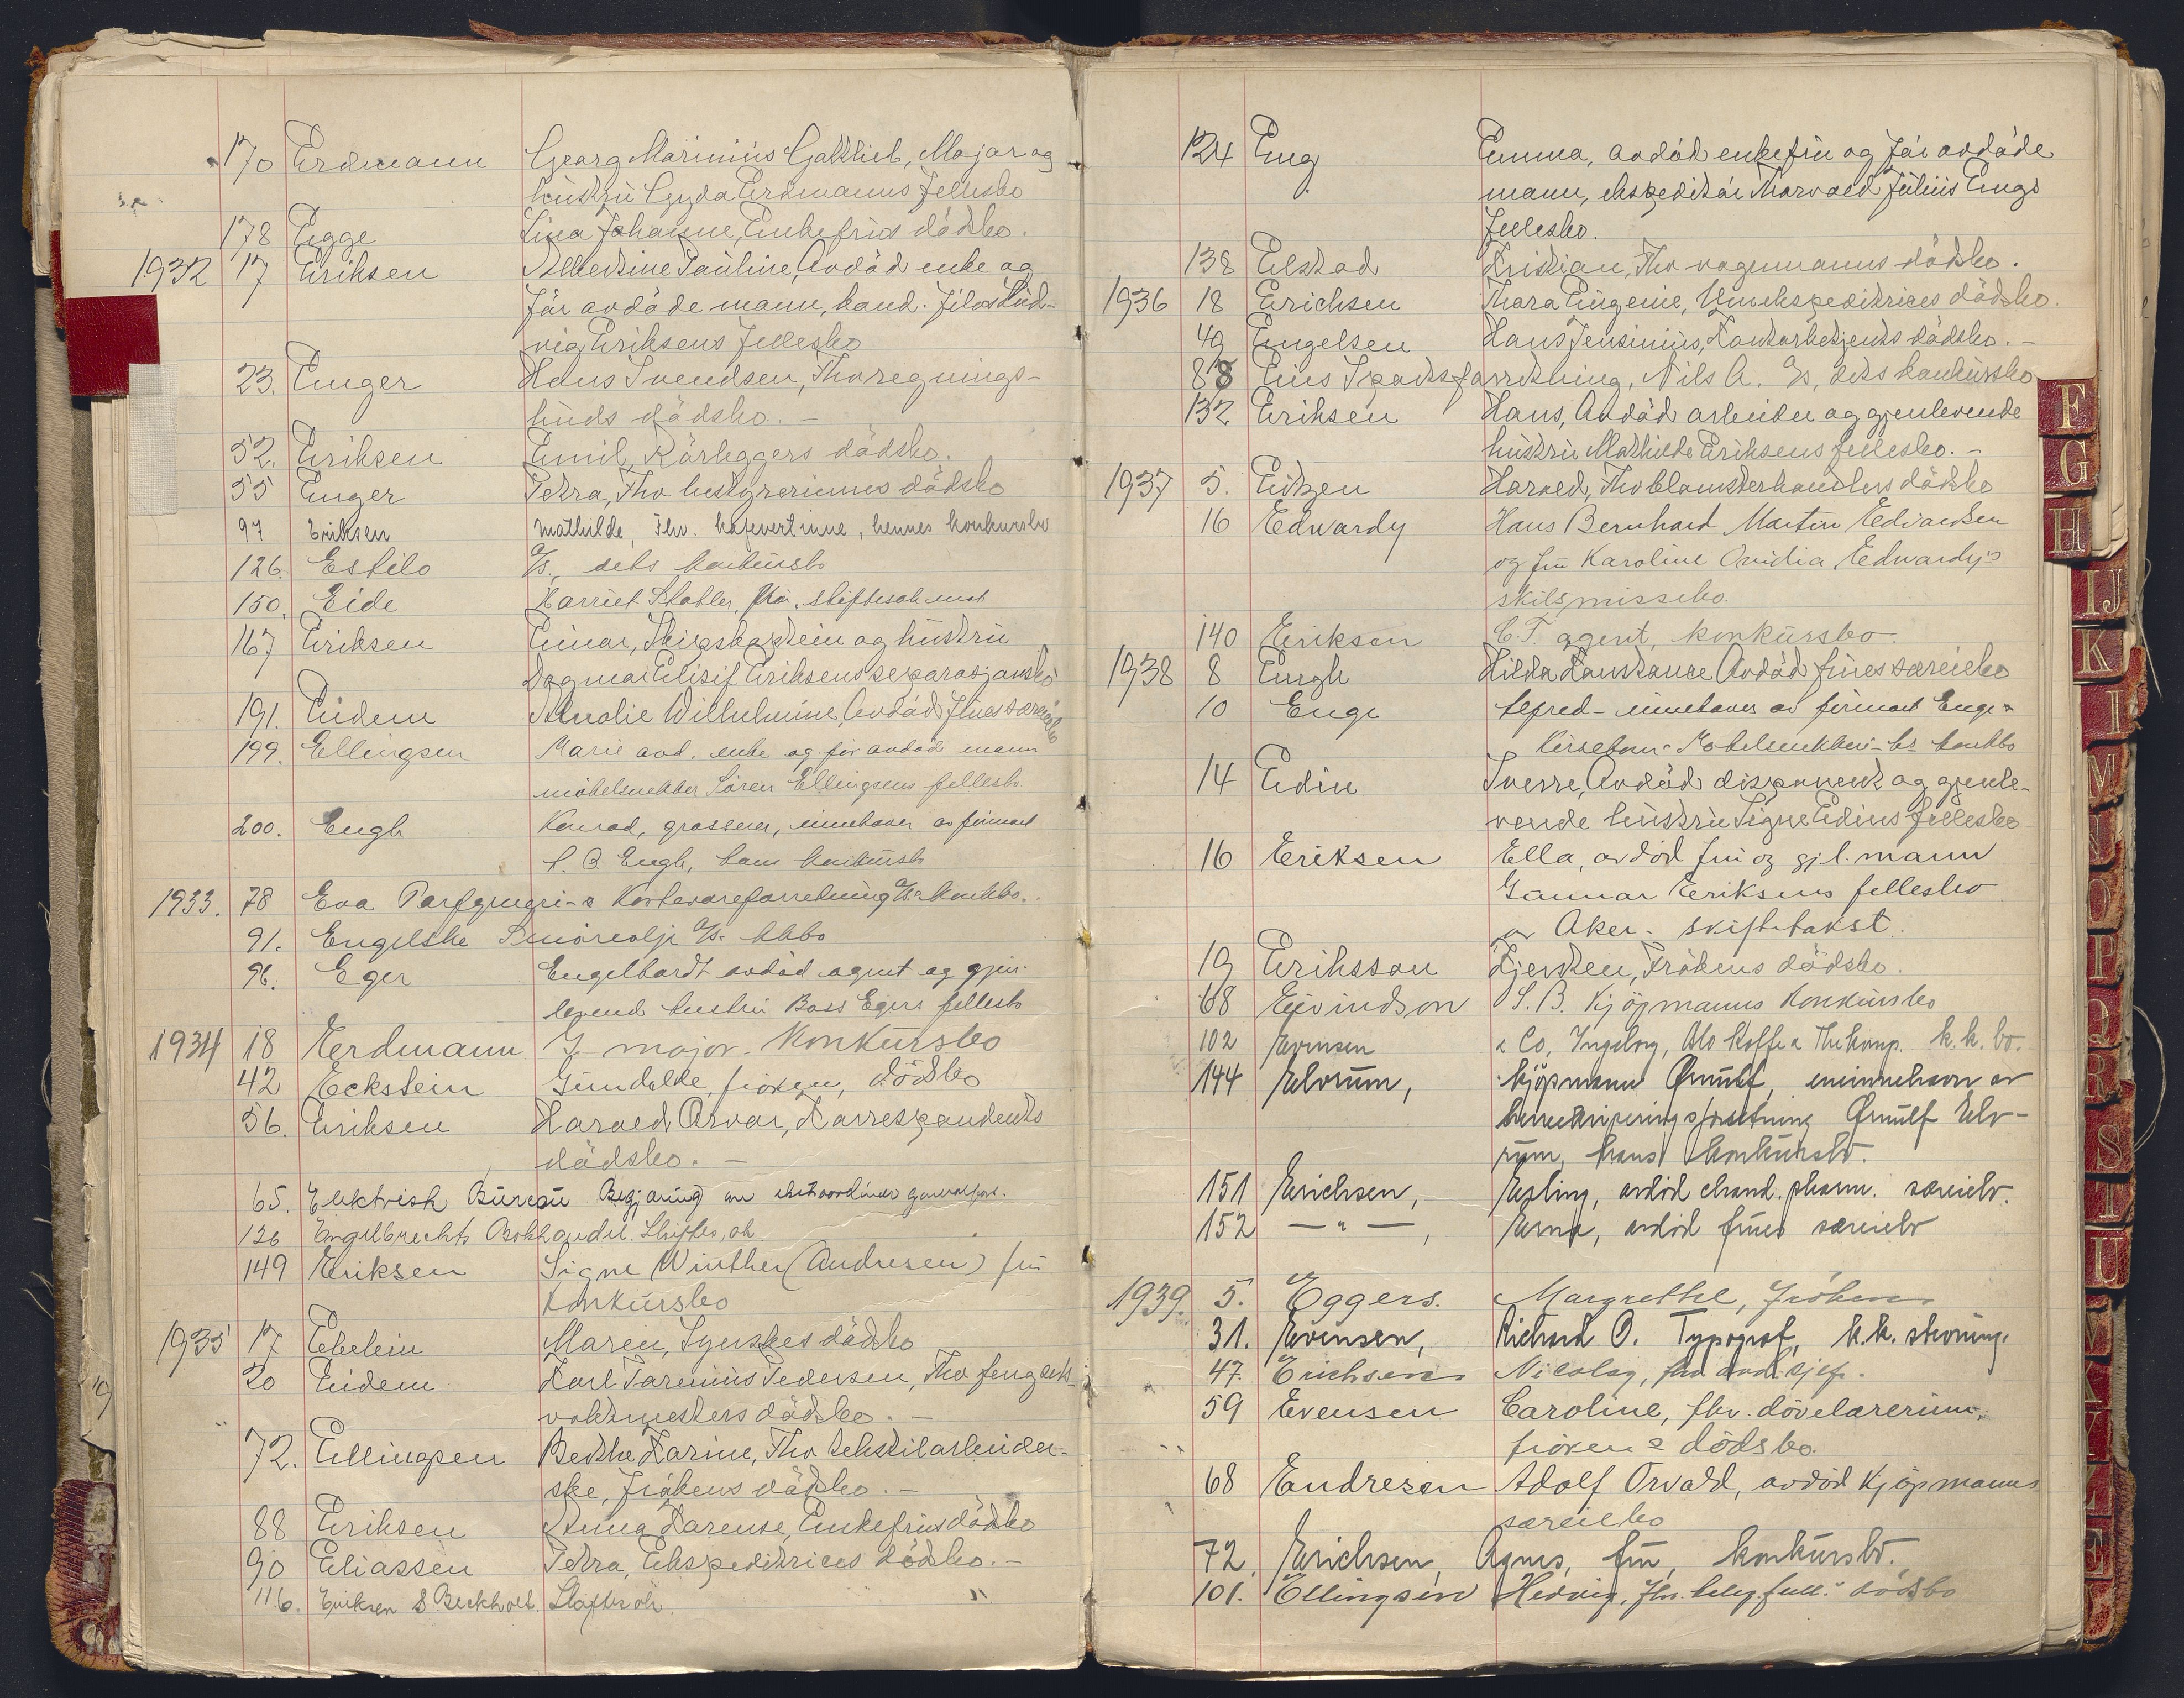 170 Erdmann Georg Marinius Gottlieb, Major og
hustru Gyda Erdmanns fellesbo
178 Egge Lina Johanne, Enkefrus dödsbo.
1932 17 Eriksen Albertine Pauline, Avdöd enke og
för avdöde mann, kand. filos Lud-
vig Eriksens fellesbo
23. Enger Hans Svendsen, Fhv regnings-
buds dödsbo. —
52. Eriksen Emil, Rörleggers dödsbo.
55 Enger Petra, Fhv bestyrerinnes dödsbo
97 Eriksen Mathilde, Fhv. kafevertinne, hennes konkursbo
126. Estilo A/S., dets konkursbo
150. Eide Harriet Stabler, fru, skiftesak
167 Eriksen Einar, Skipskaptein og hustru
Dagmar Elisif Eriksens separasjonsbo
191. Eidem Amalie Wilhelmine, Avdöd frues særeiebo
199. Ellingsen Marie avd. enke og för avdöd mann
möbelsnekker Sören Ellingsens fellesbo
200. Engh Konrad, grosserer, innehaver av firmaet
C. B. Engh, hans konkursbo
1933. 78 Eva Parfymeri- & Kortevareforretning A/S konkbo.
91. Engelske Smöreolje A/S. kkbo
96. Eger Engelhardt avdöd agent og gjen-
levende hustru Bass Egers fellesbo
1934 18 Erdmann G. major - Konkursbo
42 Eckstein Gunhilde, fröken, dödsbo
56. Eriksen Harald Orvar, Korrespondents
dödsbo. —
65. Elektrisk Bureau Begjæring om ekstraordinær generalfors.
126 Engelbrechts Bokhandel. Skiftes.ak.
149 Eriksen Signe Winther (Andresen) fru
Konkursbo
1935 17 Eberlein Maren, Syerskes dödsbo
20 Eidem Karl Tarenius Pedersen, Fhv fengsels-
vaktmesters dödsbo. —
72. Ellingsen Berthe Karine, Fhv tekstilarbeider-
ske, frökens dödsbo. —
88 Eriksen Anna Karense, Enkefrus dödsbo
90 Eliassen Petra, Ekspeditrices dödsbo. —
116. Eriksen & Beckholt. Skifteak. "
124 Eng Emma, avdöd enkefru og för avdöde
mann, ekspeditör Thorvald Julius Engs
fellesbo.
138 Elstad Kristian, Fhv vognmanns dödsbo.
1936 18 Erichsen Thora Eugenie, Urmekspeditrices dödsbo.
49 Engelsen Hans Jensinius, Kontorbetjents dödsbo. —
88 Eies Sportsforretning, Nils A. A/S, dets konkursbo
132 Eriksen Hans, Avdöd arbeider og gjenlevende
hustru Mathilde Eriksens fellesbo. —
1937 5. Eitzen Harald, Fhv blomsterhandlers dödsbo
16 Edwardy Hans Bernhard Martin Edvardsen
og fru Karoline Ovidia Edwardy's
skilsmissebo.
140 Erikson C.T. agent, konkursbo.
1938 8 Engh Hilda Konstance Avdöd frues særeiebo
10 Enge Alfred - innehaver av firmaet Enge &
Kirsebom Möbelsnekkeri - hs konkbo
14 Edin Sverre, Avdöd disponent og gjenle-
vende hustru Signe Edins fellesbo
16 Eriksen Ella, avdöd fru og gjl. mann
Gunnar Eriksens fellesbo
av Aker - skiftetakst.
19 Eriksson Kjersten, Frökens dödsbo.
68 Eivindson S. B. Kjöpmanns Konkursbo
102 Evensen & Co, Ingeborg, Oslo Kaffe & Thekomp. k.k. bo.
144 Elvrum, kjöpmann Ørnulf, eneinnehaver av
herreekviperingsforretning Ørnulf Elv-
rum, hans konkursbo.
151 Erichsen, Erling, avdöd chand. pharm. særeiebo.
152 — " — , Erna, avdöd frues særeiebo
1939. 5. Eggers. Margrethe, fröken
31. Evensen, Richard O. Typograf, k.k. stevning.
47. Erichsen Nicolay, avd. sjef.
59 Evensen Caroline, fhv. dövelærerinne,
frökens dödsbo.
68 Endresen Adolf Orvald, avdöd Kjöpmanns
særeiebo
72. Erichsen, Agnes, fru, konkursbo.
101. Ellingsen Hedvig, fhv. telegr.full. dödsbo
F
G
H
IJ
K
L
M
N
O
P
Q
R
S
T
U